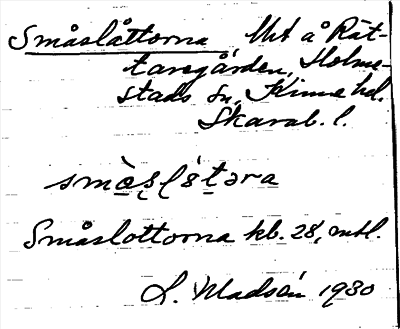 Småslåttorna Mt å Rät-
taregården, Holme-
stads sn, Kinne hd.
Skarab. l.
Småslottorna kb. 28, mtl.
L. Madsén 1930